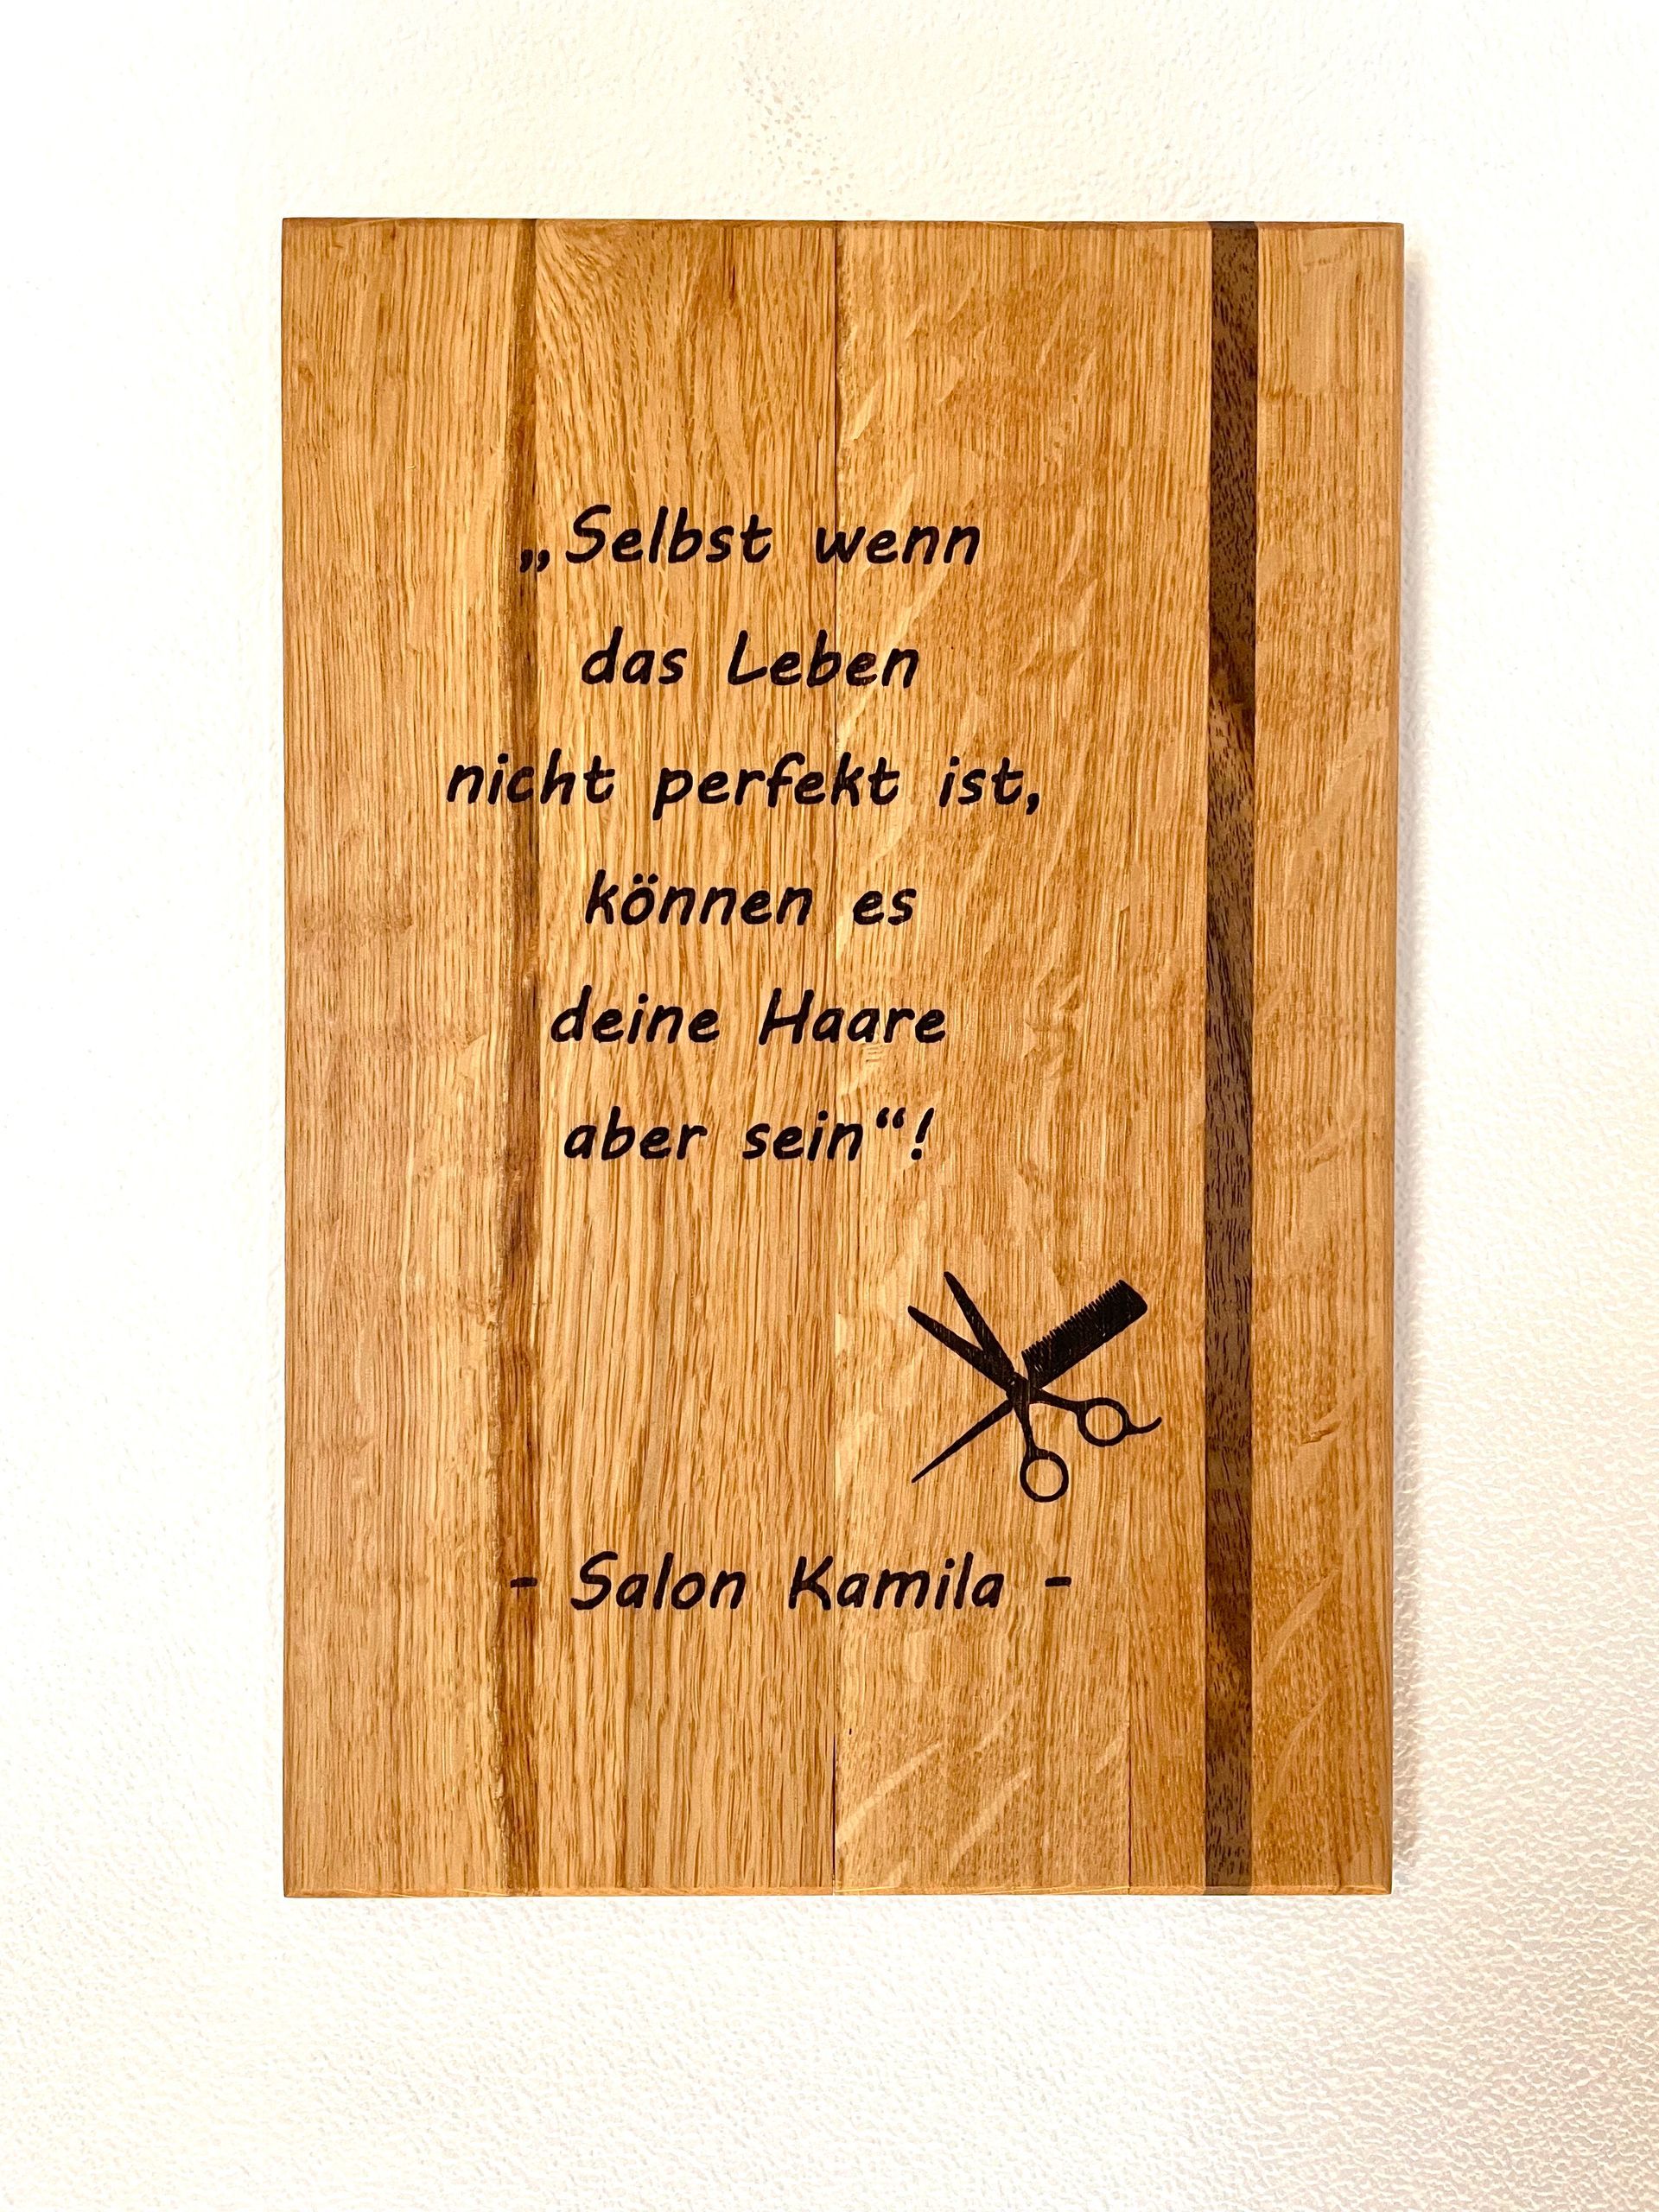 „Selbst wenn
das Leben
nicht perfekt ist,
können es
deine Haare
aber sein“!
- Salon Kamila -